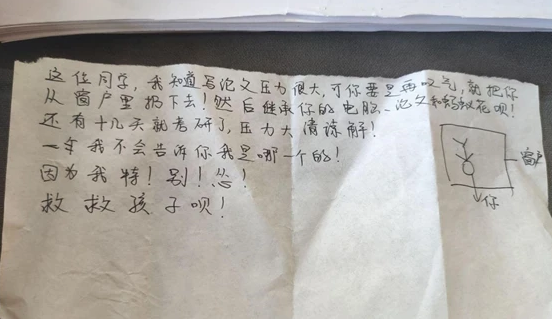 这位同学，我知道写论文压力很大，可你要是再叹气，就把你
从窗户里扔下去！然后继承你的电脑、论文和蚂蚁花呗！
还有十几天就考研了，压力大请谅解！
我不会告诉你我是哪一个的！
因为我特！别！怂！
救救孩子呗！
窗户
你